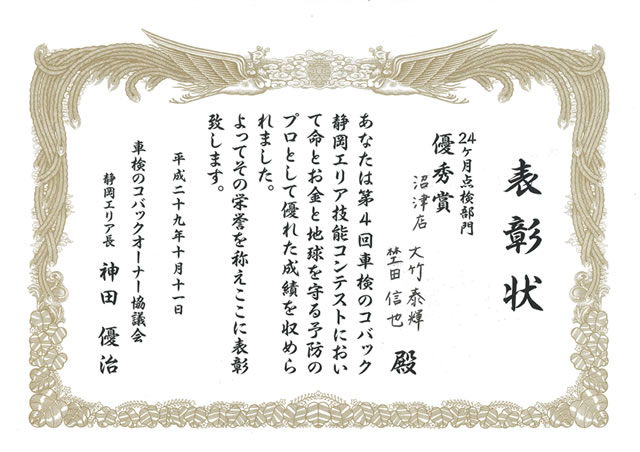 表彰状
24ヶ月点検部門
優秀賞
沼津店 大竹泰輝
埜田信也 殿
あなたは第4回車検のコバック
静岡エリア技能コンテストにおい
て命とお金と地球を守る予防の
プロとして優れた成績を収めら
れました。
よってその栄誉を称えここに表彰
致します。
平成二十九年十月十一日
車検のコバックオーナー協議会
静岡エリア長 神田優治